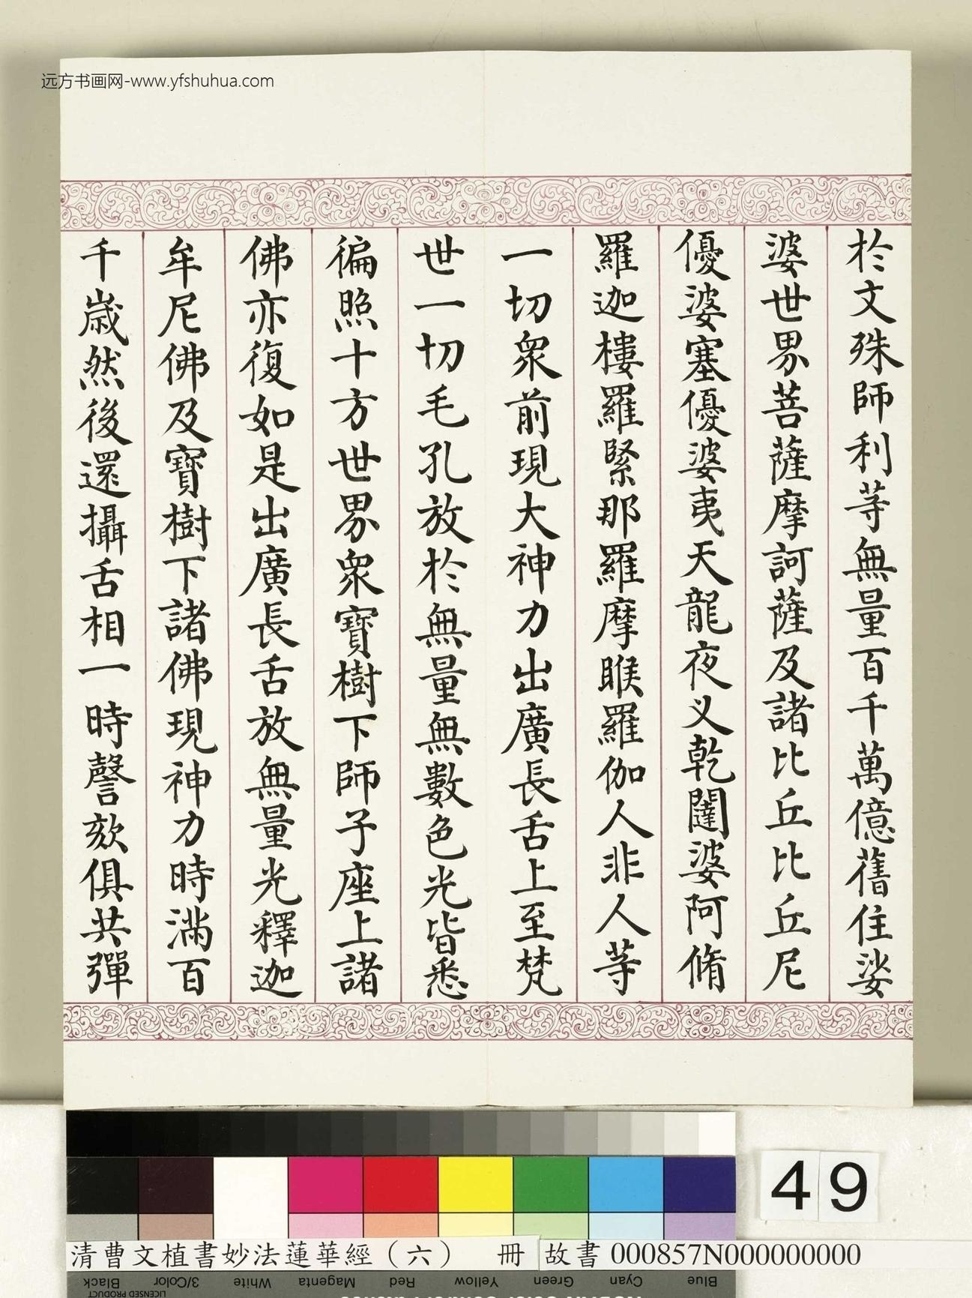 远方书画网-www.yfshuhua.com
於文殊師利等無量百千萬億舊住娑
婆世界菩薩摩訶薩及諸比丘比丘尼
優婆塞優婆夷天龍夜乂乾闥婆阿脩
羅迦樓羅緊那羅摩睺羅伽人非人等
一切衆前現大神力出廣長舌上至梵
世一切毛孔放於無量無數色光皆悉
徧照十方世界衆寶樹下師子座上諸
佛亦復如是出廣長舌放無量光釋迦
牟尼佛及寶樹下諸佛現神力時滿百
千歲然後還攝舌相一時謦欬俱共彈
49
清曹文植書妙法蓮華經（六） 冊 故書 000857N000000000
Black 3/Color White Magenta Red Yellow Green Cyan Blue
LICENSED PRODUCT